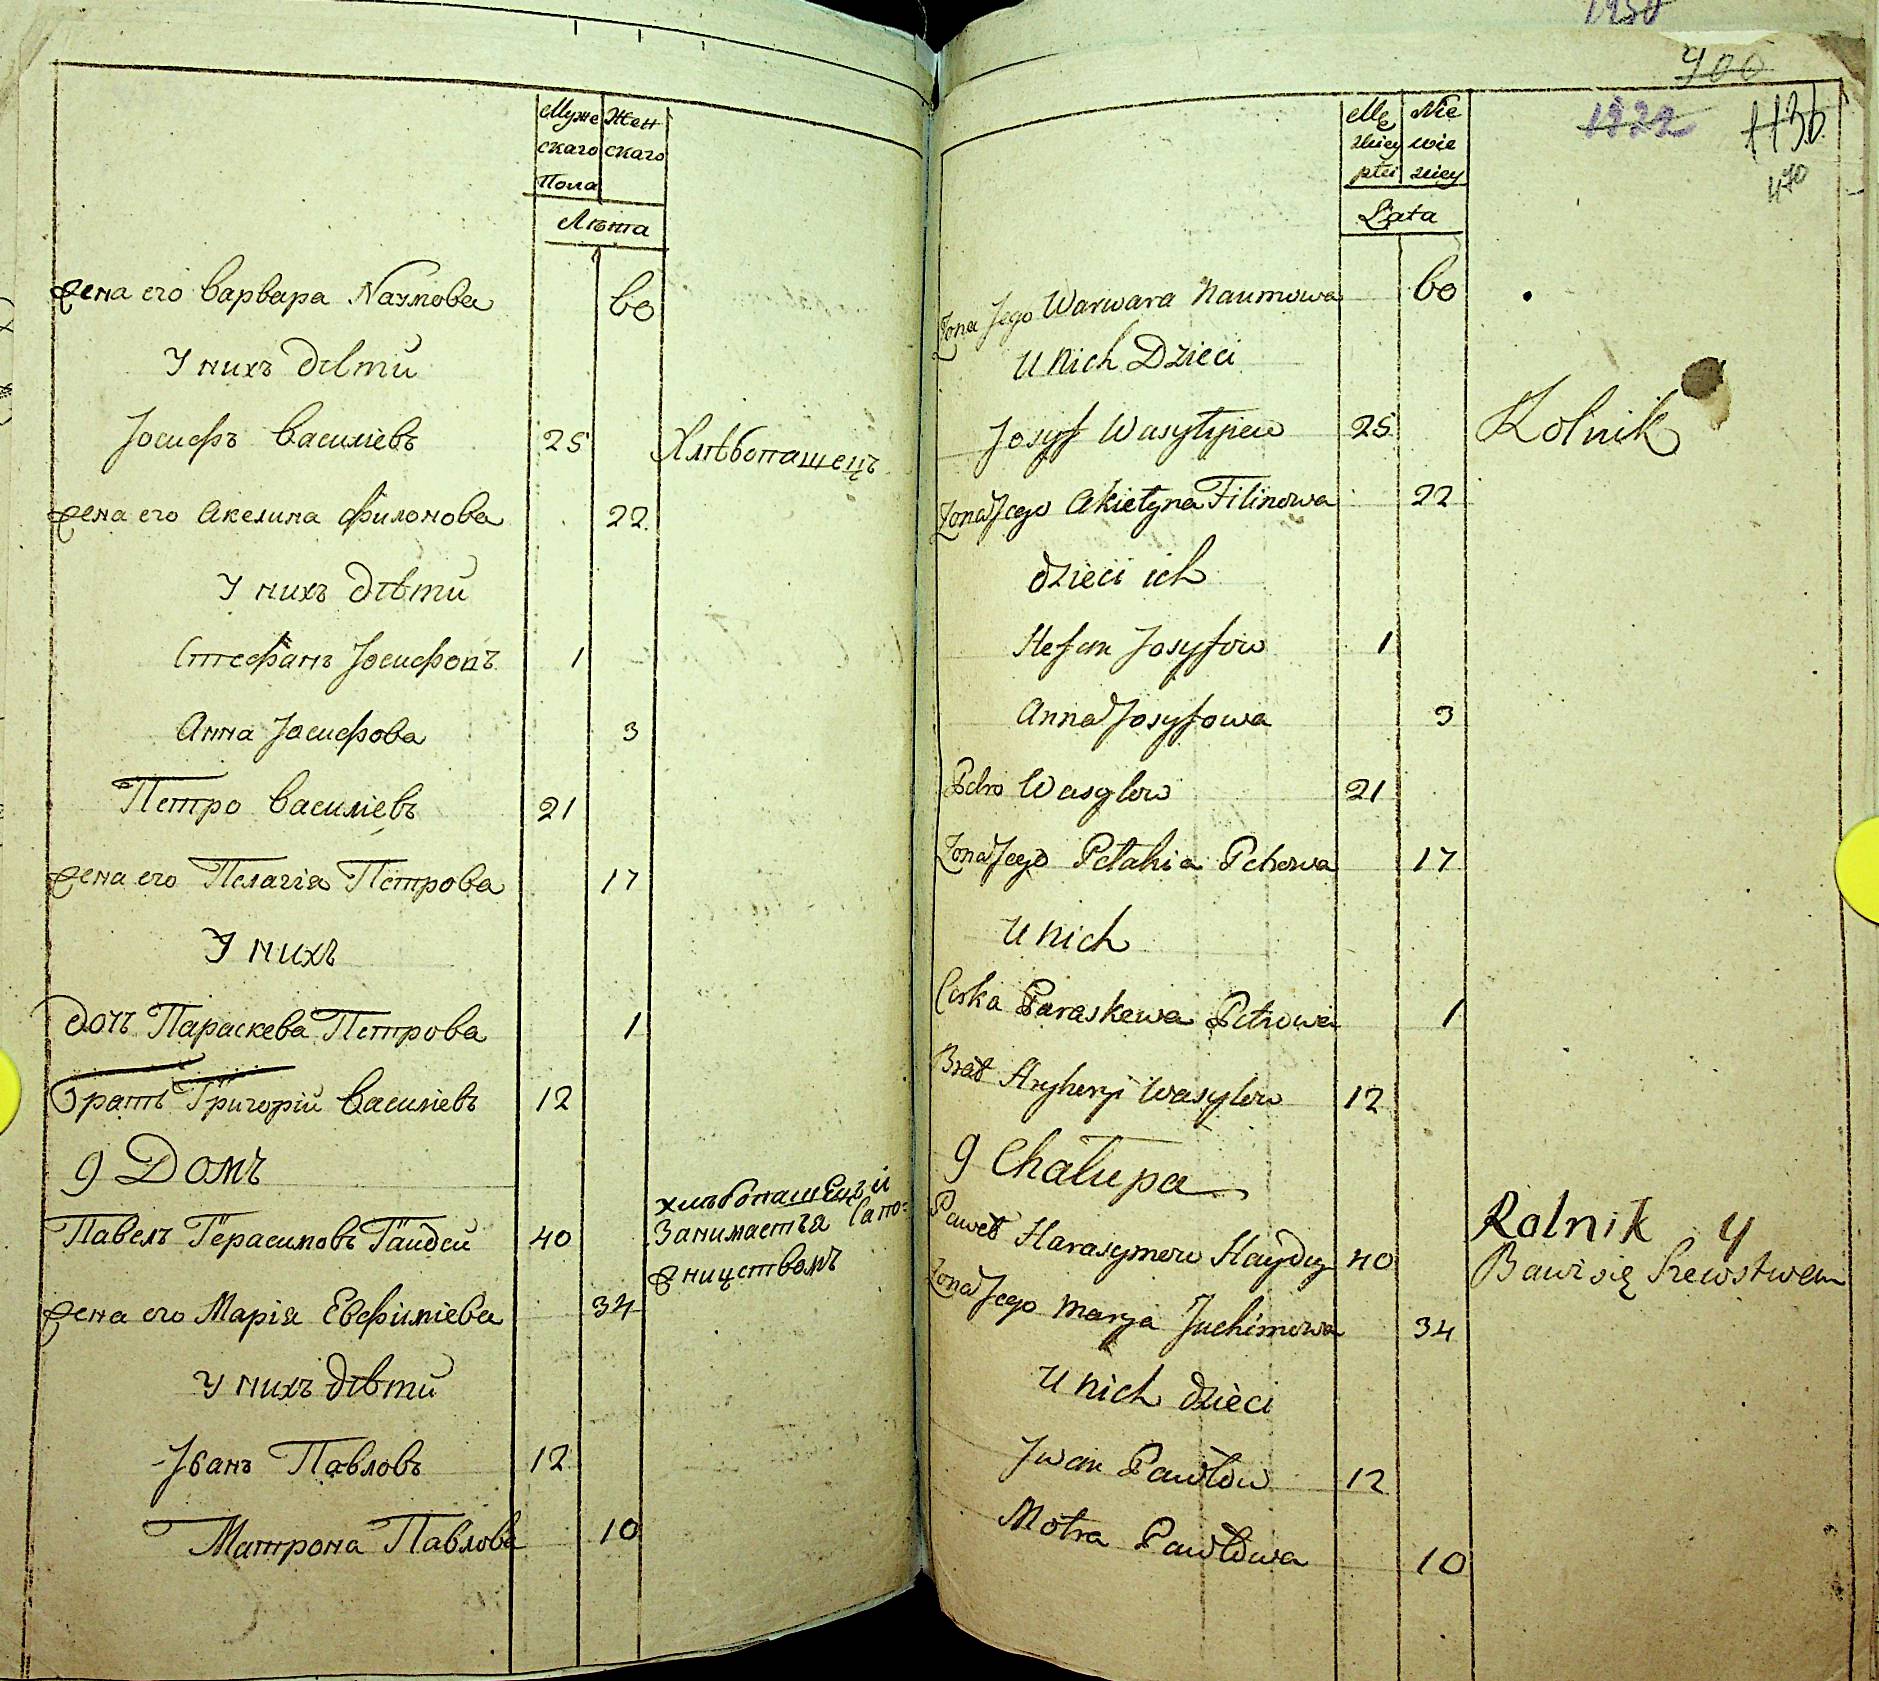 Муже Жен
скаго скаго
Пола
Лѣта
Жена его Варвара Наумова 60
У нихъ дѣти
Іосифъ Василіевъ 25 Хлѣбопашецъ
Жена его Акелина Филонова 22
У нихъ дѣти
Стефанъ Іосифовъ 1
Анна Іосифова 3
Петро Василіевъ 21
Жена его Пелагія Петрова 17
У нихъ
Дочь Параскева Петрова 1
Братъ Григорій Василіевъ 12
9 Домъ
Хлѣбопашецъ и
Павелъ Герасимовъ Гайдей 40 Занимается Сапо=
жницствомъ
Жена его Марія Евфиміева 34
У нихъ дѣти
Іванъ Павловъ 12
Матрона Павлова 10
1930
400
Mę Nie
zkiey wie
płci zkiey
1922 113b
470
Lata
Żona Jego Warwara Naumowa 60
U nich Dzieci
Josyf Wasylijew 25 Rolnik
Żona Jego Akiełyna Filinowa 22
dzieci ich
Stefan Josyfow 1
Anna Josyfowa 3
Petro Wasylow 21
Żona Jego Pełahia Petrowa 17
U nich
Corka Paraskewa Petrowa 1
Brat Hryhoryi Wasylow 12
9 Chałupa
Paweł Harasymow Haydey 40 Rolnik y
Bawi się Szewstwem
Żona Jego Marya Juchimowa 34
U nich dzieci
Jwan Pawłow 12
Motra Pawłowa 10